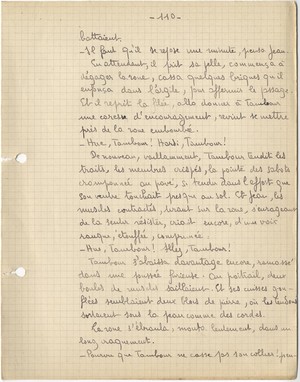 - 110 -
battaient.
- Il faut qu'il se repose une minute, pensa Jean.
En attendant, il prit sa pelle, commença à
dégager la roue, cassa quelques briques qu'il
enfonça dans l'argile, pour affermir le passage.
Et il reprit la bride, alla donner à Tambour
une caresse d'encouragement, revint se mettre
près de la roue embourbée.
- Hue, Tambour! Hardi, Tambour!
De nouveau, vaillamment, Tambour tendit les
traits, les membres crispés, la pointe des sabots
cramponnée au pavé, si tendu dans l'effort que
son ventre touchait presque au sol. Et Jean, les
muscles contractés, tirant sur la roue,
de la sentir résister, criait encore, d'une voix
rauque, étouffée, comprimée:
- Hue, Tambour! Allez, Tambour!
Tambour s'abaissa davantage encore, ramassé
dans une poussée furieuse. Au poitrail, deux
boules de muscles saillaient. Et ses cuisses gon-
flées semblaient deux blocs de pierre, où les
sortaient sous la peau comme des cordes.
La roue s'ébranla, monta lentement, dans un
long craquement.
- Pourvu que Tambour ne casse pas son collier!